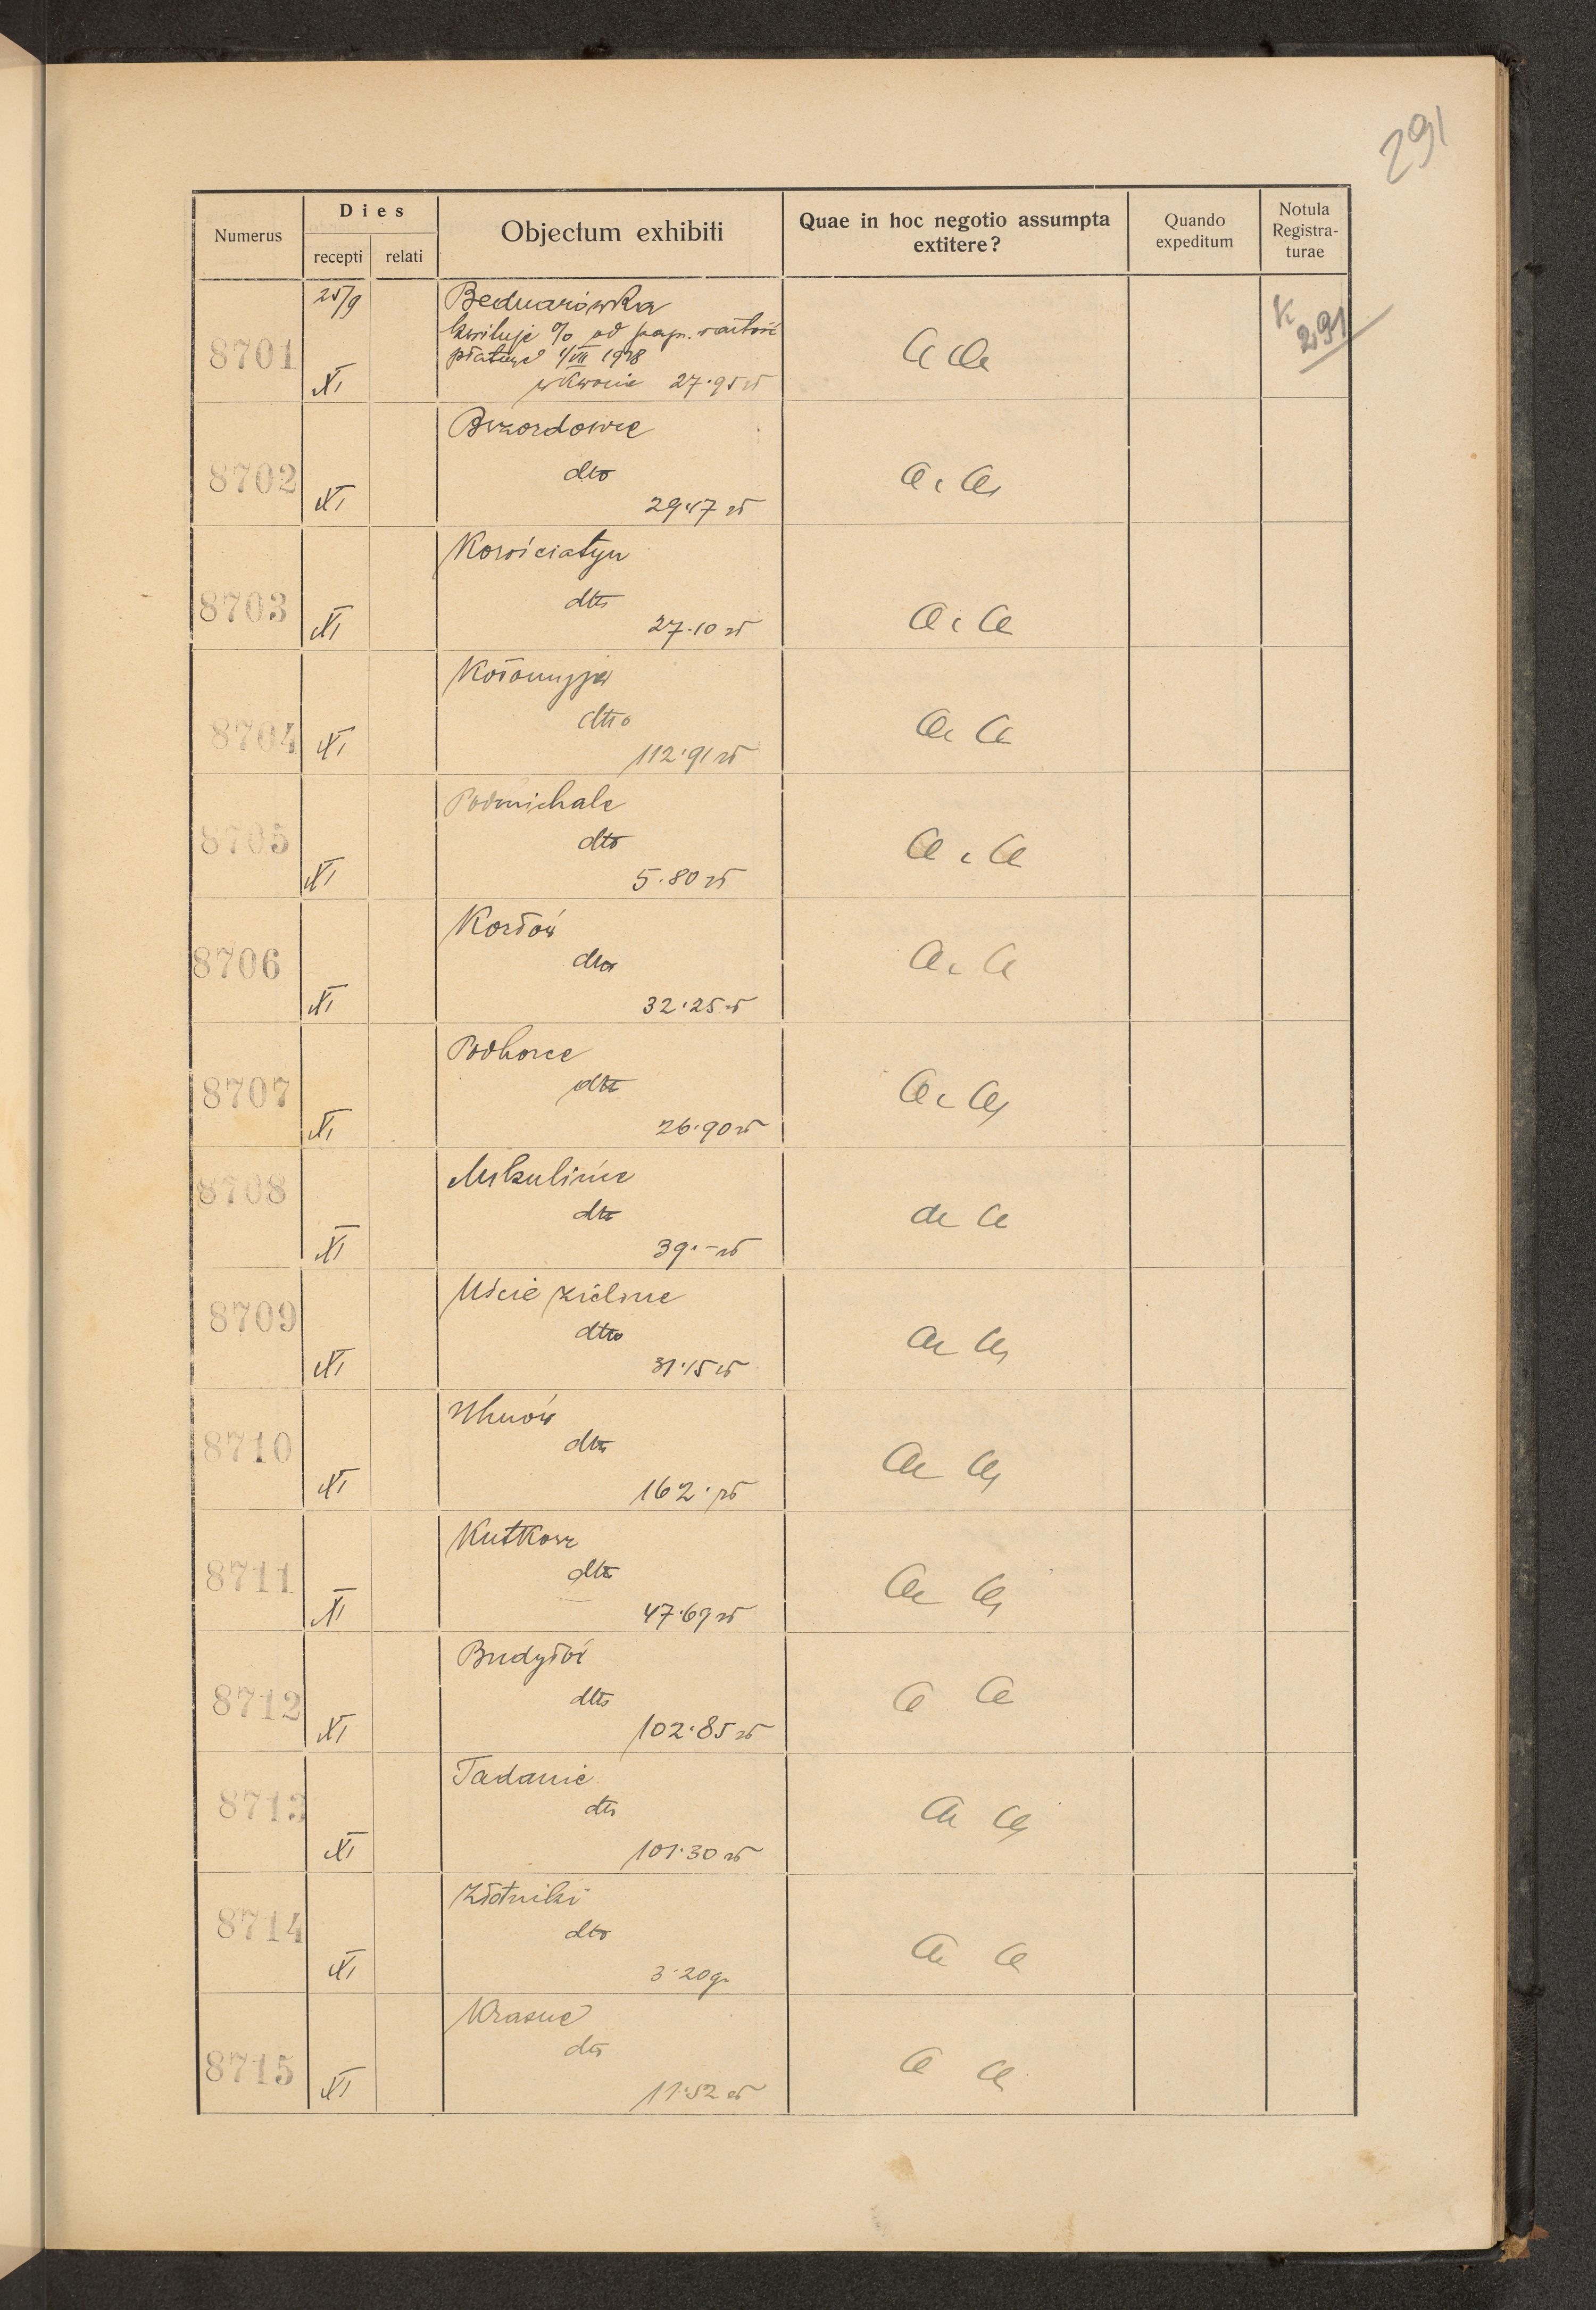 291
Numerus
Dies
recepti
relati
Objectum exhibiti
Quae in hoc negotio assumpta
extitere?
Quando
expeditum
Notula
Registra-
turae
8701
25/9
XI
Bednarówka
kwituje % od pap. wartość
płatnych 1/VII 1928
w kwocie 27.95 zł
a a
K
291
8702
XI
dto
29.47 zł
a a
8703
XI
Korościatyn
dto
27.10 zł
a a
8704
XI
Kołomyja
dto
112.91 zł
a a
8705
XI
Podmichale
dto
5.80 zł
a a
8706
XI
Kozłów
dto
32.25 zł
a a
8707
XI
Podhorce
dto
26.90 zł
a a
8708
XI
Mikulińce
dto
39.– zł
a a
8709
XI
Uście zielone
dto
31.15 zł
a a
8710
XI
Uhnów
dto
162. zł
a a
8711
XI
Kutkorz
dto
47.69 zł
a a
8712
XI
Budyłów
dto
102.85 zł
a a
8713
XI
Tadanie
dto
101.30 zł
a a
8714
XI
Złotniki
dto
3.20 gr
a a
8715
XI
Krasne
dto
11.52 zł
a a